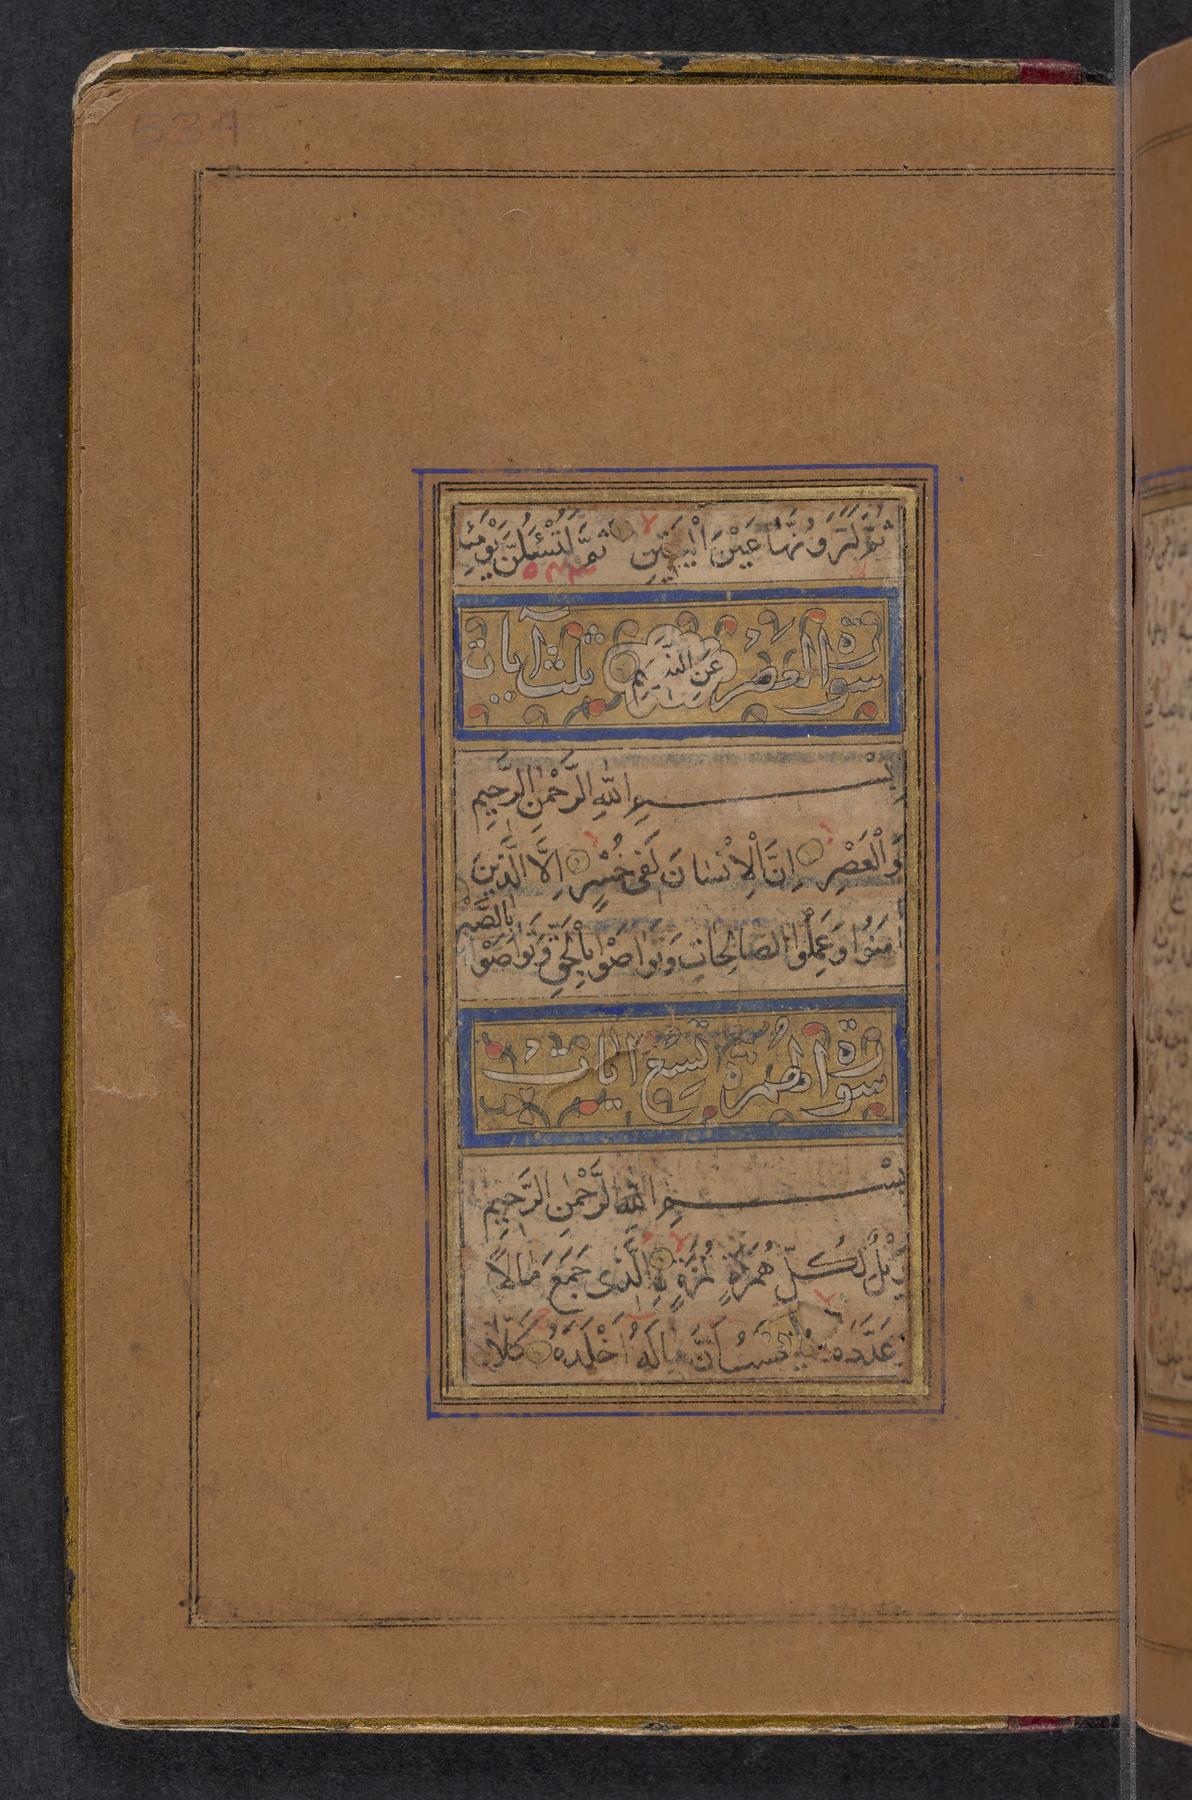 534
ثُمَّ لَتَرَوُنَّهَا عَيْنَ الْيَقِينِ ثُمَّ لَتُسْئَلُنَّ يَوْمَئِذٍ
سورة العصر عَنِ النَّعِيمِ ثلث آيات
بِسْمِ اللّٰهِ الرَّحْمٰنِ الرَّحِيمِ
وَالْعَصْرِ اِنَّ الْاِنْسَانَ لَفِى خُسْرٍ اِلَّا الَّذِينَ
اٰمَنُوا وَعَمِلُوا الصَّالِحَاتِ وَتَوَاصَوْا بِالْحَقِّ وَتَوَاصَوْا بِالصَّبْرِ
سورة الهمزة تسع ايات
بِسْمِ اللّٰهِ الرَّحْمٰنِ الرَّحِيمِ
وَيْلٌ لِكُلِّ هُمَزَةٍ لُمَزَةٍ الَّذِى جَمَعَ مَالًا
وَعَدَّدَهُ يَحْسَبُ اَنَّ مَالَهُ اَخْلَدَهُ كَلَّا